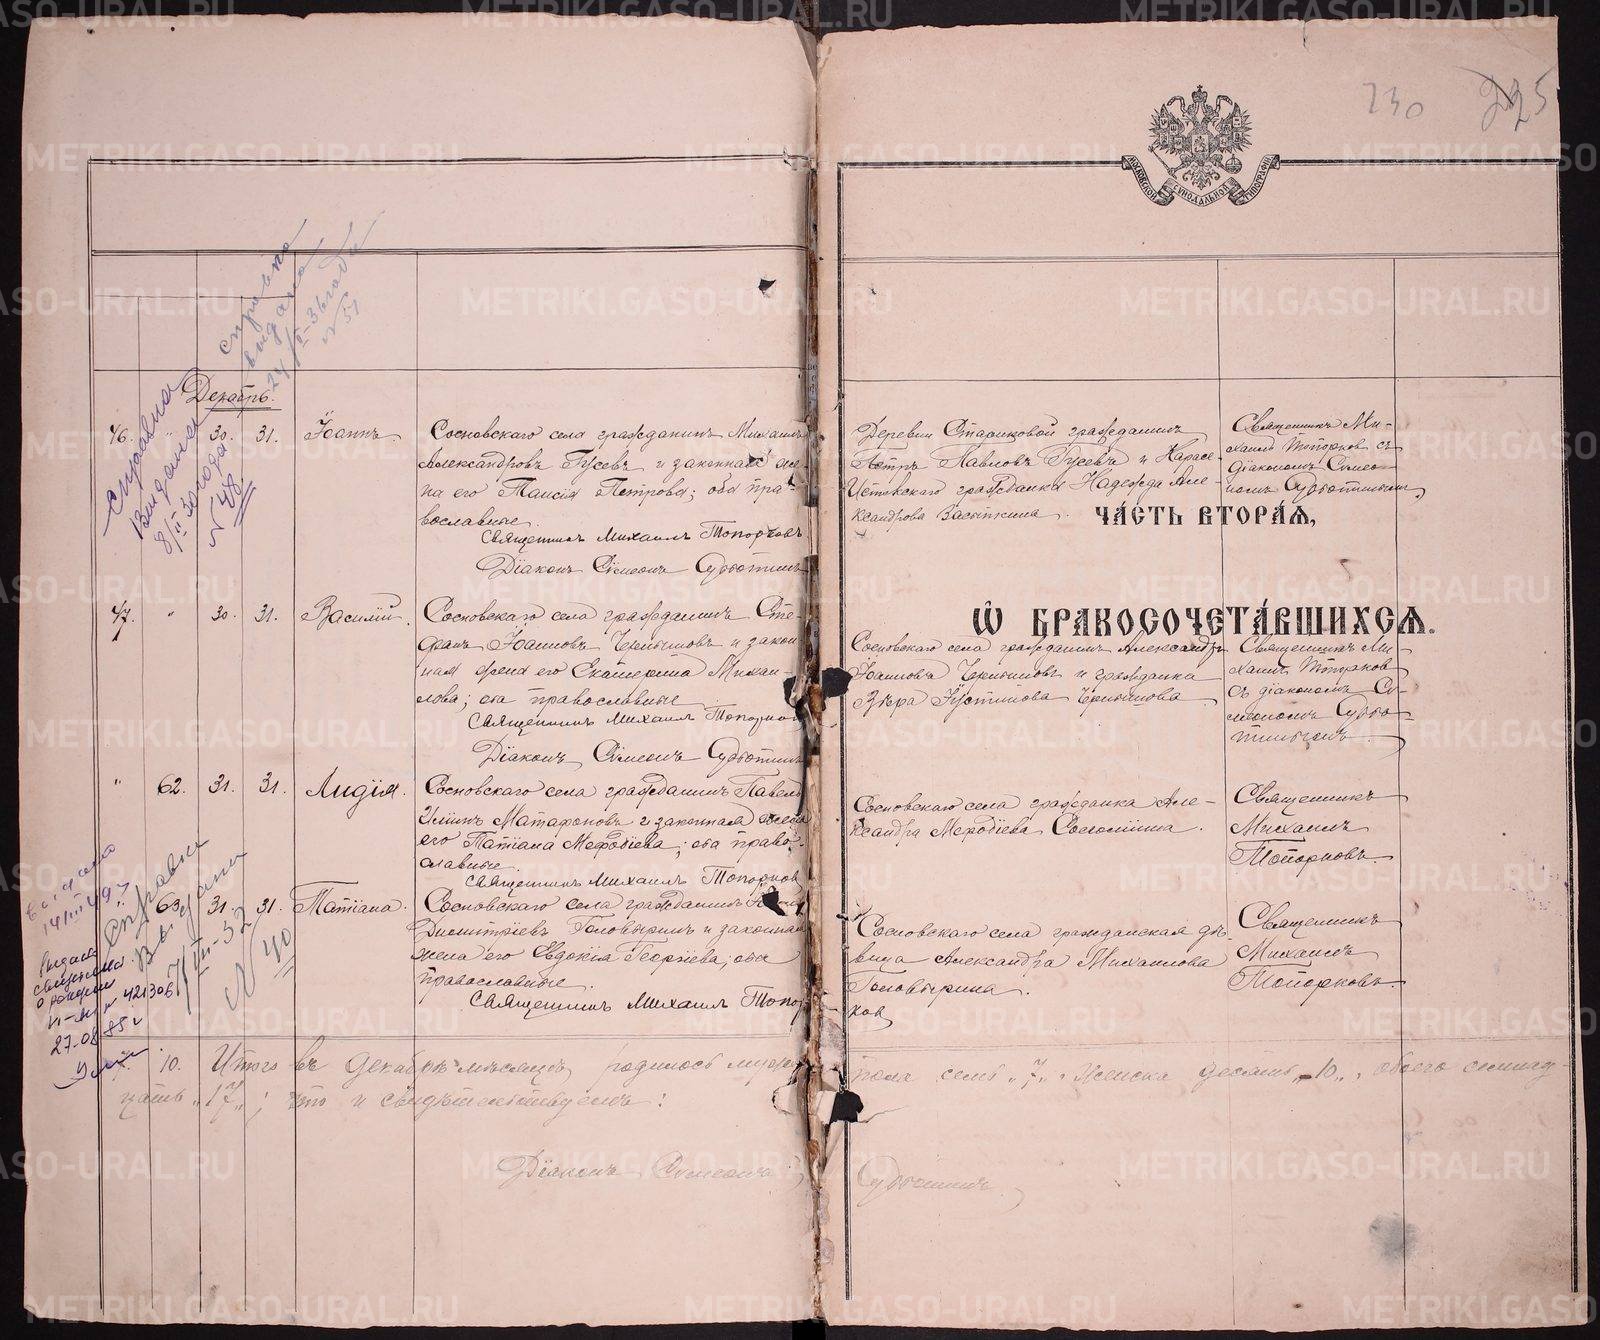 230 225
МОСКОВСКОЙ СУНОДАЛЬНОЙ ТИПОГРАФІИ
справка
выдана
24/II-36 года
№ 51
Справка
Выдана
8/II
года
№ 48
Декабрь.
46. " 30. 31. Іоаннъ.
Сосновскаго села гражданинъ Михаилъ
Александровъ Гусевъ и законная же-
на его Таисія Петрова; оба пра-
вославные.
Священникъ Михаилъ Топорковъ
Діаконъ Сѵмеонъ Субботинъ
Деревни Стариковой гражданинъ
Петръ Павловъ Гусевъ и
гражданка Надежда Але-
ксандрова
Священникъ Ми-
хаилъ Топорковъ съ
діакономъ Сѵмео-
номъ Субботинымъ
ЧАСТЬ ВТОРАЯ,
Ѡ БРАКОСОЧЕТАВШИХСЯ.
47. " 30. 31. Василій.
Сосновскаго села гражданинъ Сте-
фанъ Іоанновъ Чернышовъ и закон-
ная жена его Екатерина Михаи-
лова; оба православные
Священникъ Михаилъ Топорков
Діаконъ Сѵмеонъ Субботинъ
Сосновскаго села гражданинъ Александръ
Іоанновъ Чернышовъ и гражданка
Вѣра Іустинова Чернышова
Священникъ Ми-
хаилъ Топорковъ
съ діакономъ Сѵ-
меономъ Суббо-
тинымъ
" 62. 31. 31. Лидія.
Сосновскаго села гражданинъ Павелъ
Ильинъ Матафоновъ и законная жена
его Татіана Меѳодіева; оба право-
славные
Священникъ Михаилъ Топорков
Сосновскаго села гражданка Але-
ксандра Меѳодіева
Священникъ
Михаилъ
Топорковъ.
63. 31. 31. Татіана.
Сосновскаго села гражданинъ
Димитріевъ Головыринъ и законная
жена его Евдокія Георгіева; оба
православные.
Священникъ Михаилъ Топор
ков
Сосновскаго села гражданская дѣ-
вица Александра Михаилова
Головырина.
Священникъ
Михаилъ
Топорковъ.
14/III 49 г
Справка
Выдана
7/III-32
№ 40
Выдано
свид
о рождении
421306
27-08
10. Итого въ декабрѣ мѣсяцѣ родилось муж пола семь „7„ женска десять „10„, обоего семнад-
цать „17„; что и свидѣтельствуемъ:
Діаконъ Сѵмеонъ Субботинъ